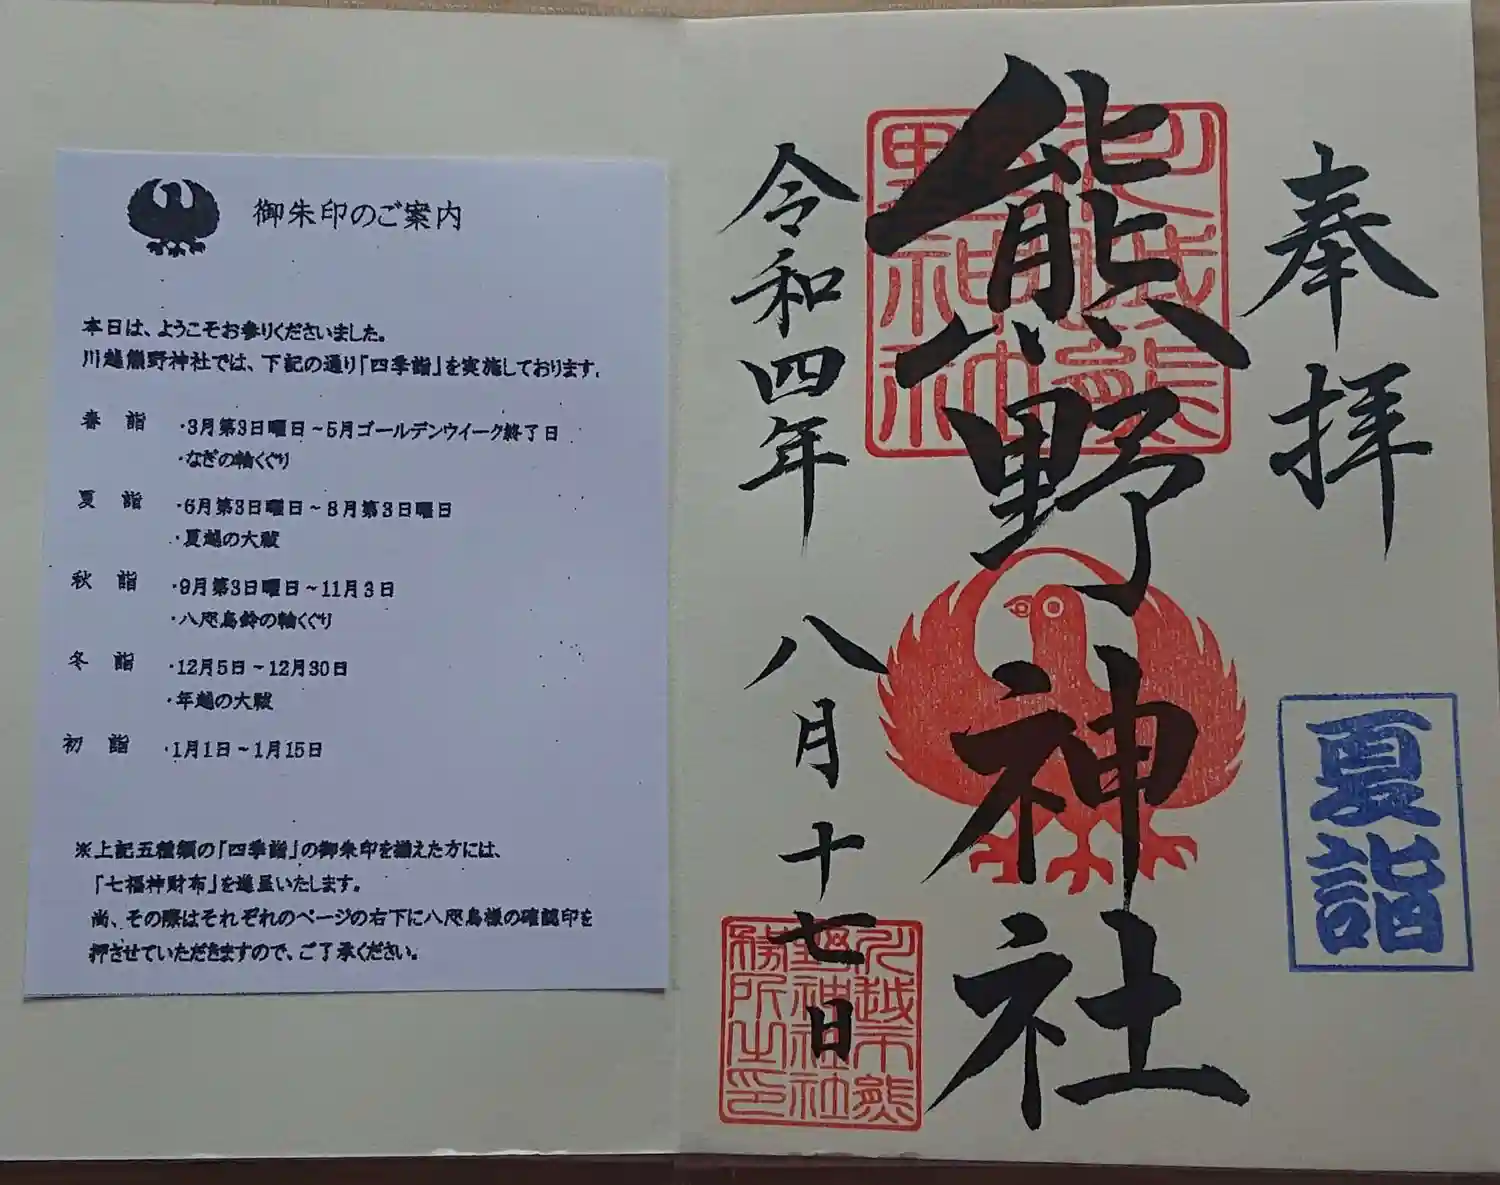 御朱印のご案内
本日は、ようこそお参りくださいました。
川越熊野神社では、下記の通り「四季詣」を実施しております。
春 詣 ・3月第3日曜日～5月ゴールデンウイーク終了日
・なぎの輪くぐり
夏 詣 ・6月第3日曜日～8月第3日曜日
・夏越の大祓
秋 詣 ・9月第3日曜日～11月3日
・八咫烏鈴の輪くぐり
冬 詣 ・12月5日～12月30日
・年越の大祓
初 詣 ・1月1日～1月15日
※上記五種類の「四季詣」の御朱印を揃えた方には、
「七福神財布」を進呈いたします。
尚、その際はそれぞれのページの右下に八咫烏様の確認印を
押させていただきますので、ご了承ください。
奉拝
夏詣
熊野神社
川越熊
野神社
令和四年 八月十七日
川越市熊
野神社社
務所之印